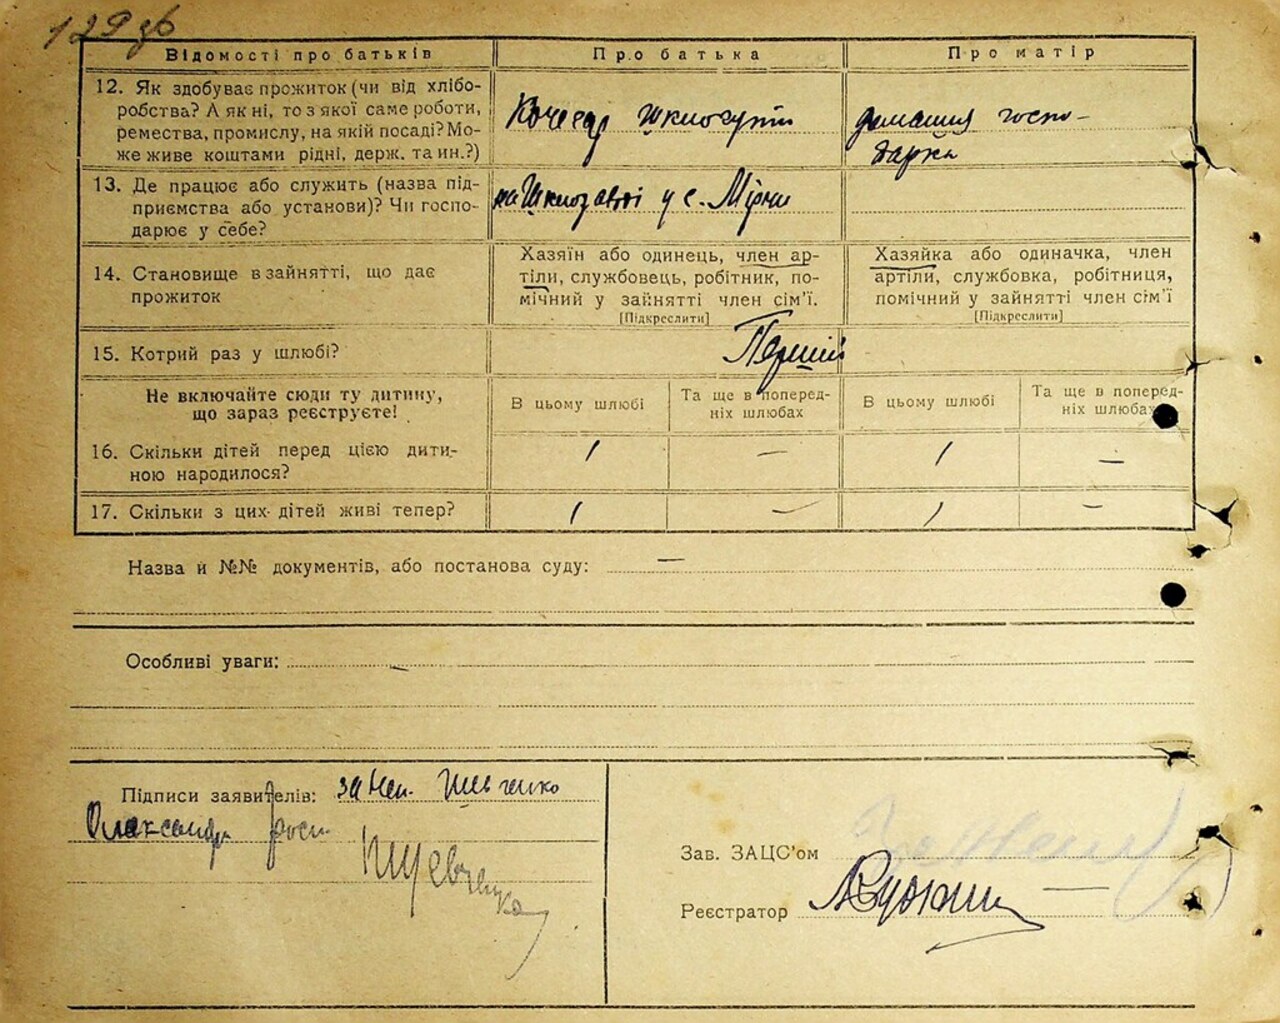 129 зв
Відомості про батьків Про батька Про матір
12. Як здобуває прожиток (чи від хлібо-
робства? А як ні, то з якої саме роботи,
ремества, промислу, на якій посаді? Мо-
же живе коштами рідні, держ. та ин.?)
Кочегар
домашня госпо-
дарка
13. Де працює або служить (назва під-
приємства або установи)? Чи госпо-
дарює у себе?
на Шклозаводі у с.
14. Становище в зайнятті, що дає
прожиток
Хазяїн або одинець, член ар-
тіли, службовець, робітник, по-
мічний у зайнятті член сім'ї.
[Підкреслити]
Хазяйка або одиначка, член
артіли, службовка, робітниця,
помічний у зайнятті член сім'ї
[Підкреслити]
15. Котрий раз у шлюбі?
Перший
Не включайте сюди ту дитину,
що зараз реєструєте!
В цьому шлюбі
Та ще в поперед-
ніх шлюбах
В цьому шлюбі
Та ще в поперед-
ніх шлюбах
16. Скільки дітей перед цією дити-
ною народилося?
1 — 1 —
17. Скільки з цих дітей живі тепер?
1 — 1 —
Назва й №№ документів, або постанова суду: —
Особливі уваги: —
Підписи заявителів: за неп. Шевченко
Олександр роси.
Шевченко
Зав. ЗАЦС'ом
Реєстратор